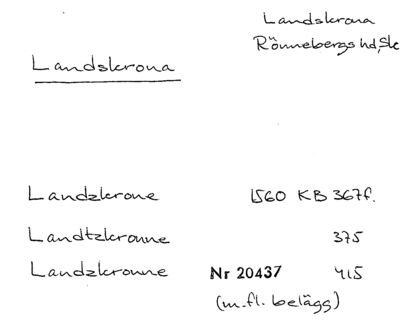 Landskrona
Rönnebergs hd, Sk
Landskrona
Landzkrone 1560 KB 367f.
Landtzkronne 375
Landzkronne Nr 20437 415
(m.fl. belägg)